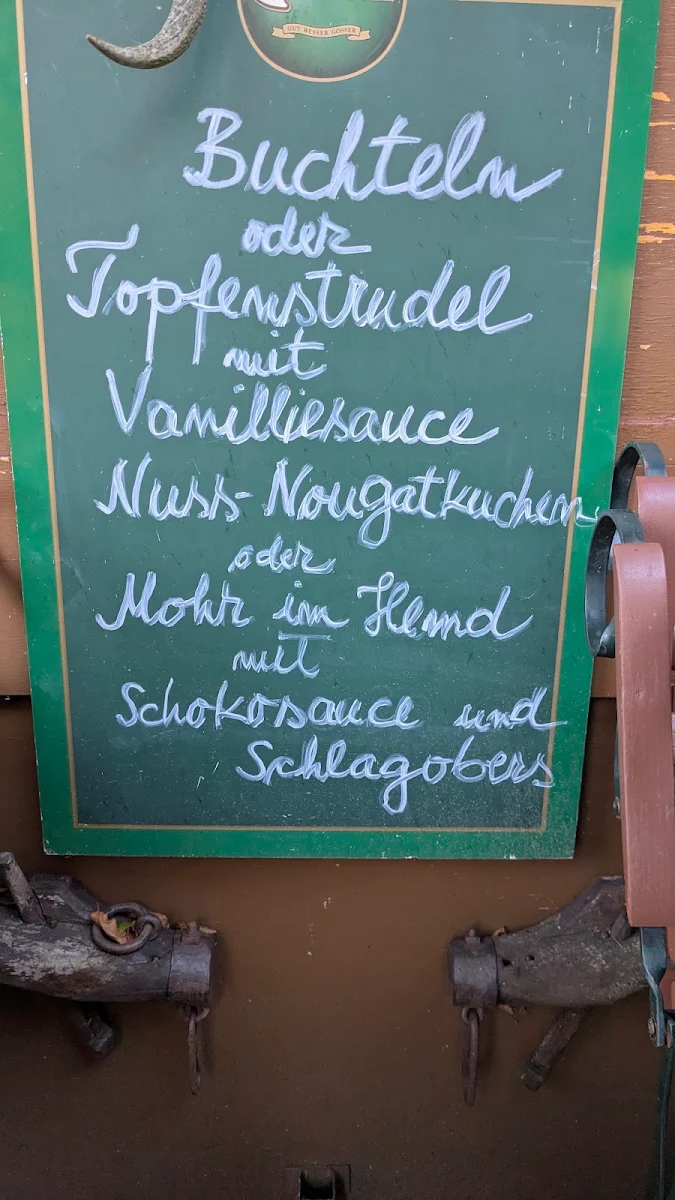 GUT, BESSER, GÖSSER.
Buchteln
oder
Topfenstrudel
mit
Vanilliesauce
Nuss-Nougatkuchen
oder
Mohr im Hemd
mit
Schokosauce und
Schlagobers